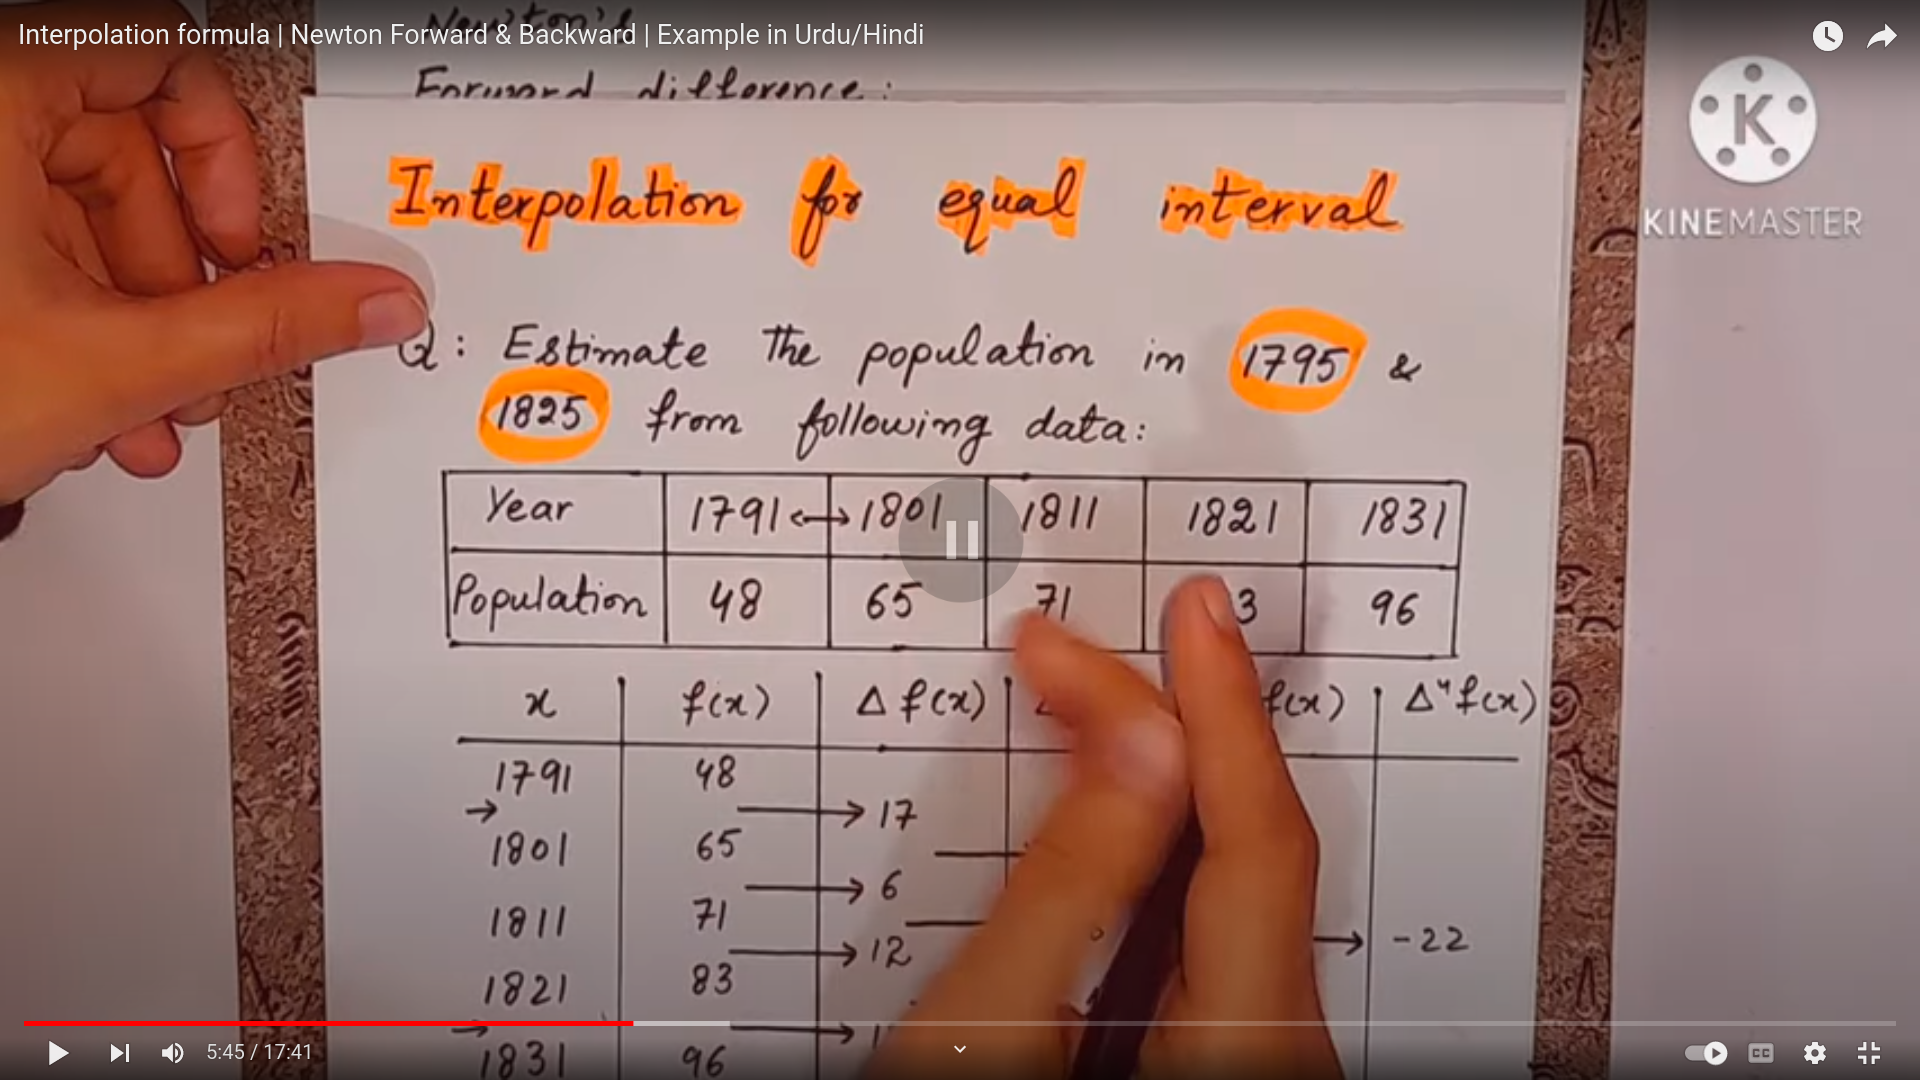 Interpolation formula | Newton Forward & Backward | Example in Urdu/Hindi
Newton's
Forward difference:
KINEMASTER
Interpolation for equal interval
Q: Estimate the population in 1795 &
1825 from following data:
Year 1791 ↔ 1801 1811 1821 1831
Population 48 65 71 3 96
x f(x) Δ f(x) f(x) Δ⁴ f(x)
1791 48
→ → 17
1801 65
→ 6
1811 71
→ 12 → -22
1821 83
→ →
1831 96
5:45 / 17:41
CC